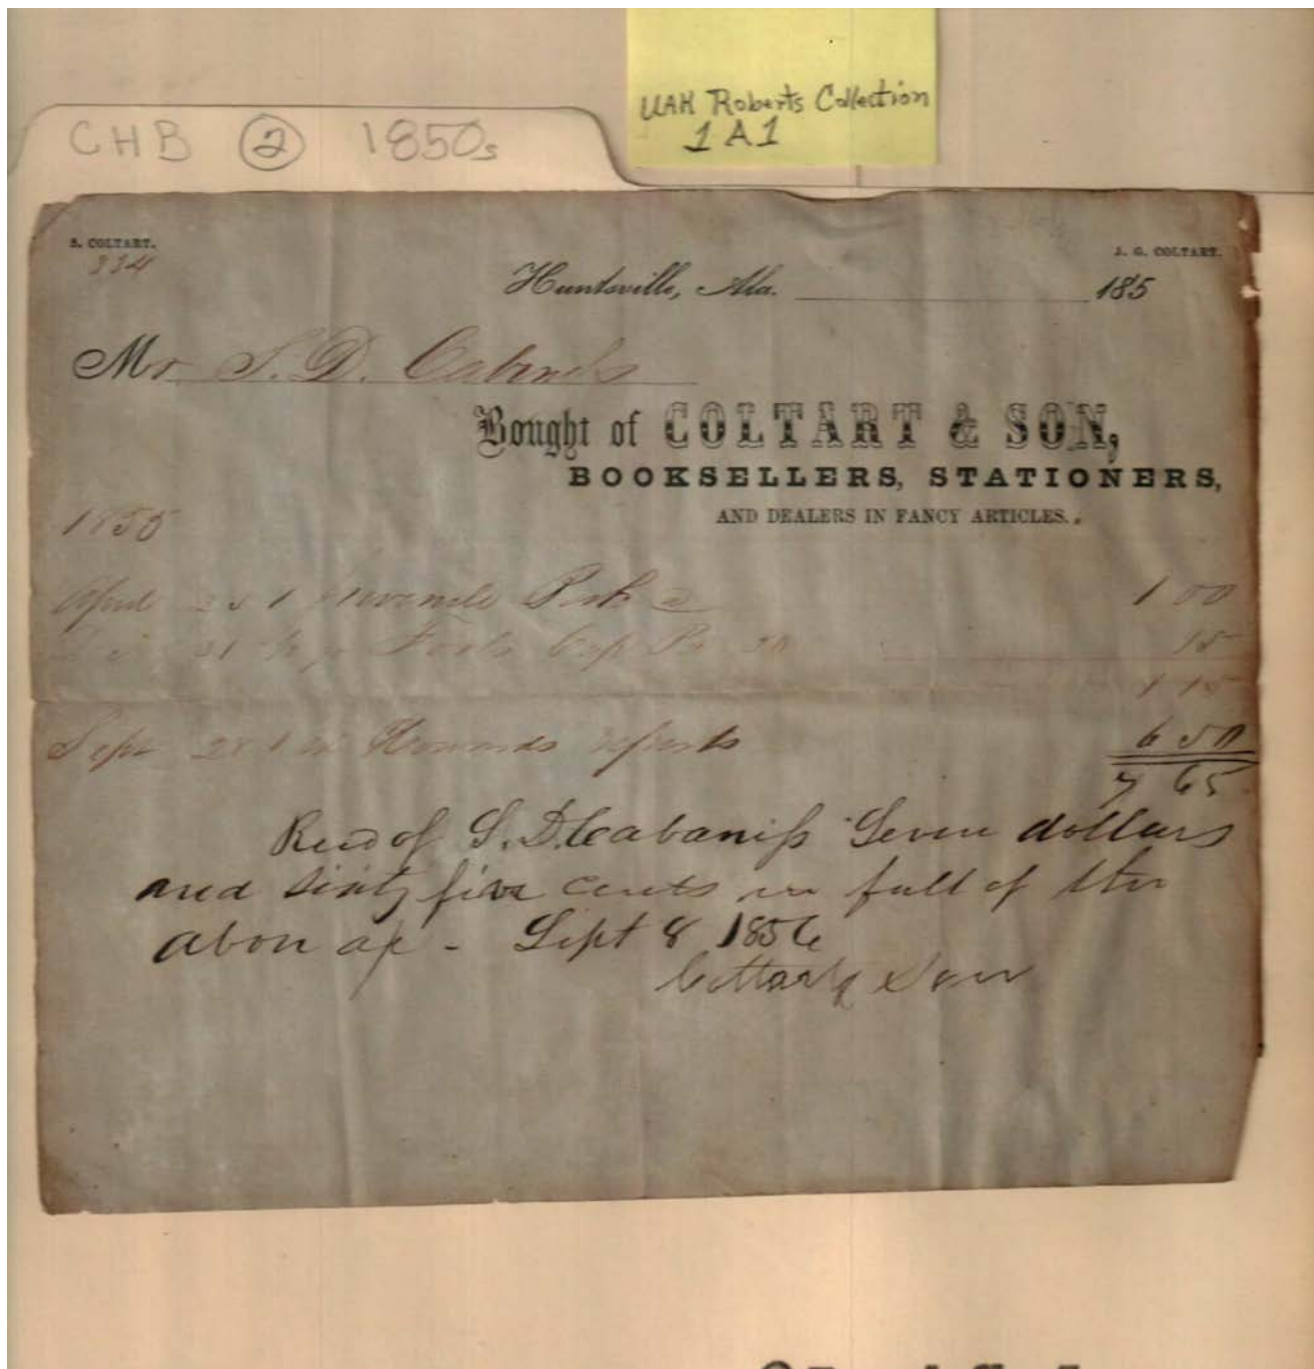 UAH Roberts Collection
1A1
CHB 2 1850s
S. COLTART.
334
J. G. COLTART.
Huntsville, Ala. 185
Mr S. D. Cabaniss
Bought of COLTART & SON,
BOOKSELLERS, STATIONERS,
AND DEALERS IN FANCY ARTICLES.
1855
April 25 1 Juvenile 1 00
31 Fools Cap 30 15
1 15
Sept 28 1 Howards reports 6 50
7 65
Recd of S. D. Cabaniss Seven dollars
and sixty five cents in full of the
abov ac - Sept 8 1856
Coltart & Son